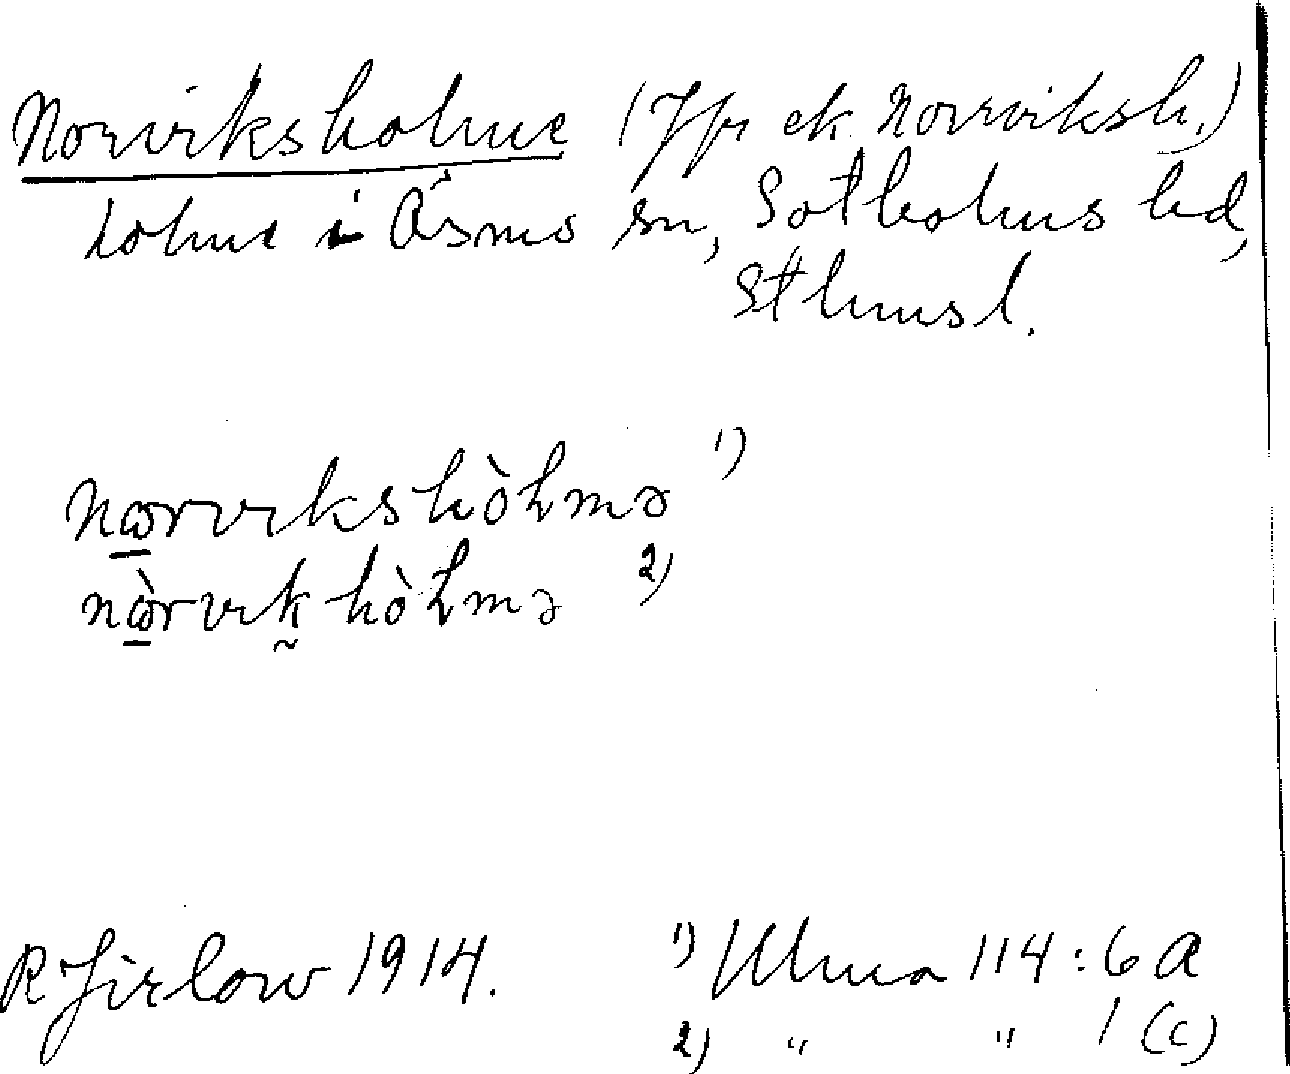 Norviksholme (Jfr ek. Norrviksh.)
holme i Ösmo sn, Sotholms hd,
Sthlmsl.
nωrvikshòƚmə 1)
nὼrvik̰hòƚmə 2)
R Jirlow 1914. 1) Ulma 114:6 a
2) " " 1 (c)